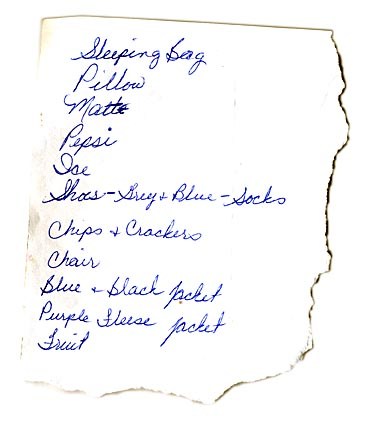 Sleeping bag
Pillow
Matt
Pepsi
Ice
Shoes - Grey + Blue - Socks
Chips + Crackers
Chair
Blue + black jacket
Purple Fleese jacket
Fruit